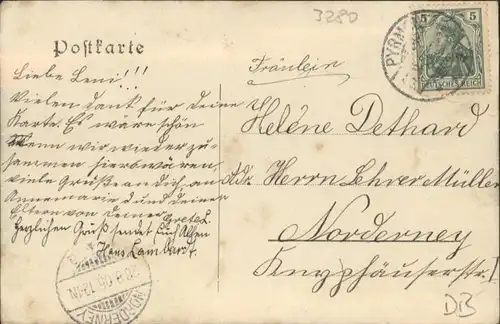 3280
Postkarte
PYRM
5 5
DEUTSCHES REICH
Liebe Leni!!!
Vielen Dank für Deine
Karte. Es wäre schön
wenn wir wieder zu-
sammen hier wären,
viele Grüße an dich an
Annemarie und deine
Eltern von deiner Grete L.
Herzlichen Gruß sendet Euch Allen
Hans Lambardt.
Fräulein
Helene Dethard
Adr. Herrn Lehrer Müller
Norderney
Knyphäuserstr. 1
NORDERNEY
DB